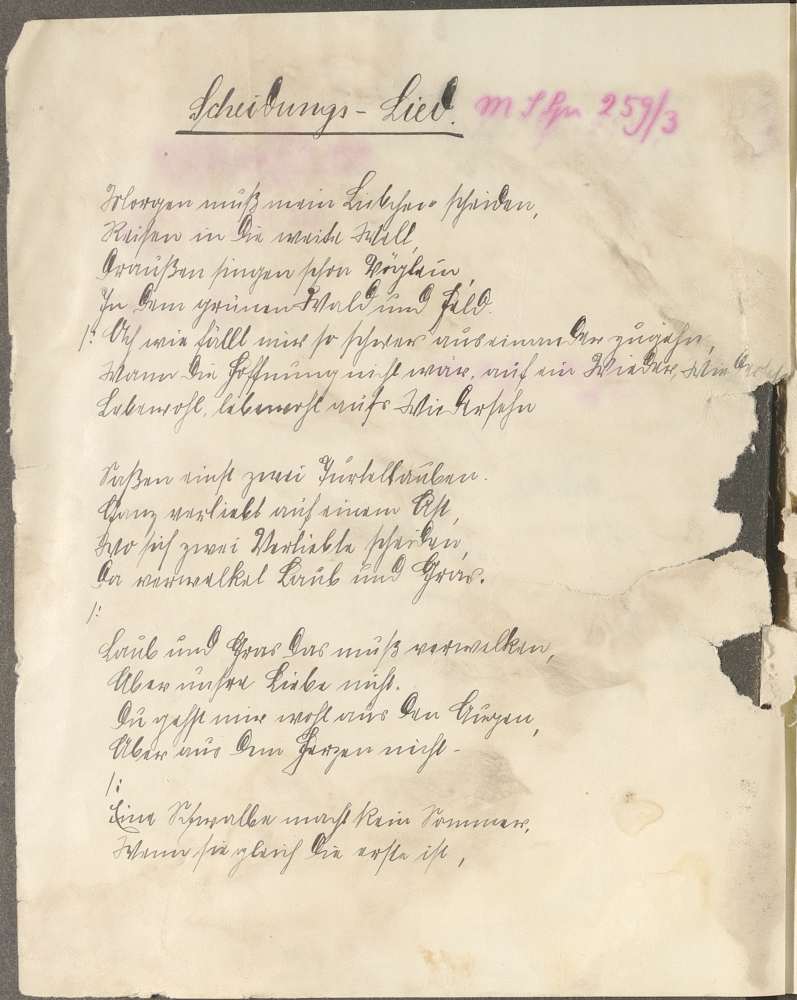 Scheidungs-Lied.
259/3
Morgen muß mein Liebchen scheiden,
Reisen in die weite Welt,
Draußen singen schon Vöglein,
In dem grünen Wald und Feld.
/: Ach wie fällt mir so schwer auseinander zugehn,
Wann die Hoffnung nicht wär, auf ein Wieder, Wieder
Lebewohl, lebewohl aufs Wiedersehn
Saßen einst zwei Turteltauben.
Ganz verliebt auf einem Ast,
Wo sich zwei Verliebte scheiden,
Da verwelket Laub und Gras.
/:
Laub und Gras das muß verwelken,
Aber unsre Liebe nicht.
Du gehst mir wohl aus den Augen,
Aber aus dem Herzen nicht-
/:
Eine Schwalbe macht kein Sommer,
Wenn sie gleich die erste ist,